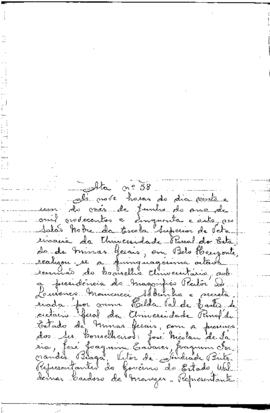 Ata nº 38
Às nove horas do dia vinte e
um do mês de Junho do ano de
mil novecentos e cinquenta e oito, no
Salão Nobre da Escola Superior de Vete
rinária da Universidade Rural do Esta
do de Minas Gerais, em Belo Horizonte,
realizou-se a quinquagésima oitava
reunião do Conselho Universitário, sob
a presidência do Magnífico Reitor Dr.
Lourenço Menicucci Sobrinho e secreta
riada por mim Hilda Val de Castro, se
cretário Geral da Universidade Rural do
Estado de Minas Gerais, com a presença
dos srs. Conselheiros: José Nicolau de
ria, José Joaquim Tavares, Joaquim Fer
nandes Braga, Vitor de Andrade Brito,
Representantes do Governo do Estado Wal
demar Cardoso de Menezes, Representante